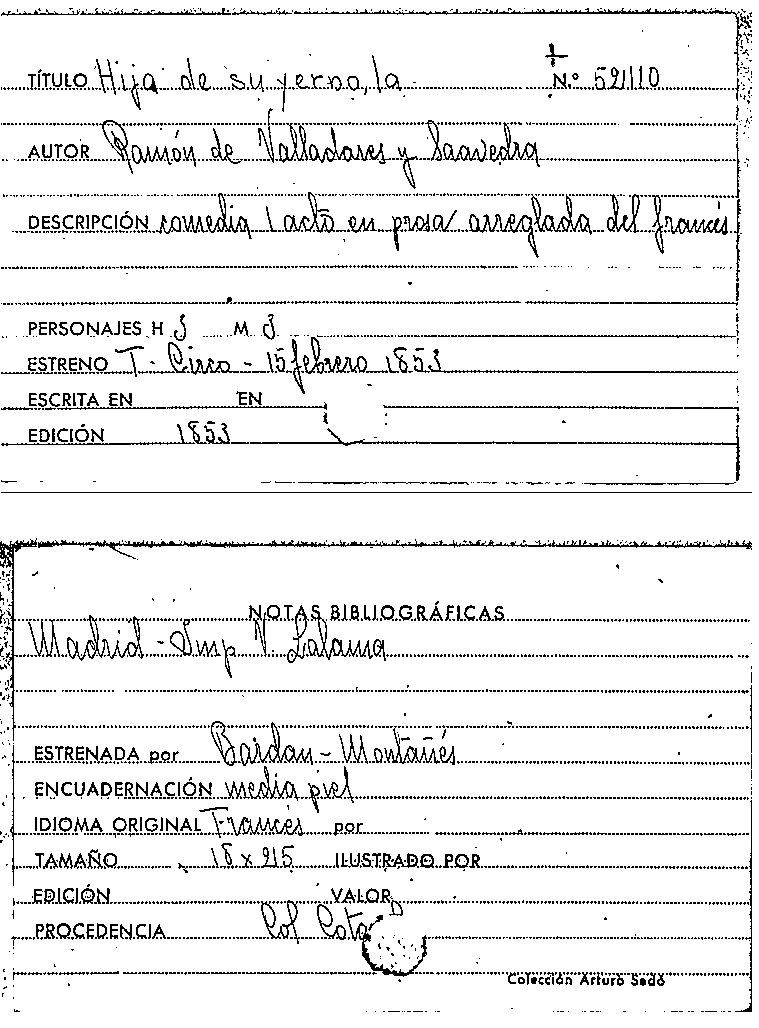 TÍTULO Hija de su yerno, la N.º 52110
AUTOR Ramón de Valladares y Saavedra
DESCRIPCIÓN comedia 1 acto en prosa arreglada del francés
PERSONAJES H 3 M 3
ESTRENO T. Circo - 15 febrero 1853
ESCRITA EN EN
EDICIÓN 1853
NOTAS BIBLIOGRÁFICAS
Madrid - Imp V. Lalama
ESTRENADA por Bardan - Montañés
ENCUADERNACIÓN media piel
IDIOMA ORIGINAL Francés por
TAMAÑO 18 x 215 ILUSTRADO POR
EDICIÓN VALOR
PROCEDENCIA Col Cota
Colección Arturo Sedó